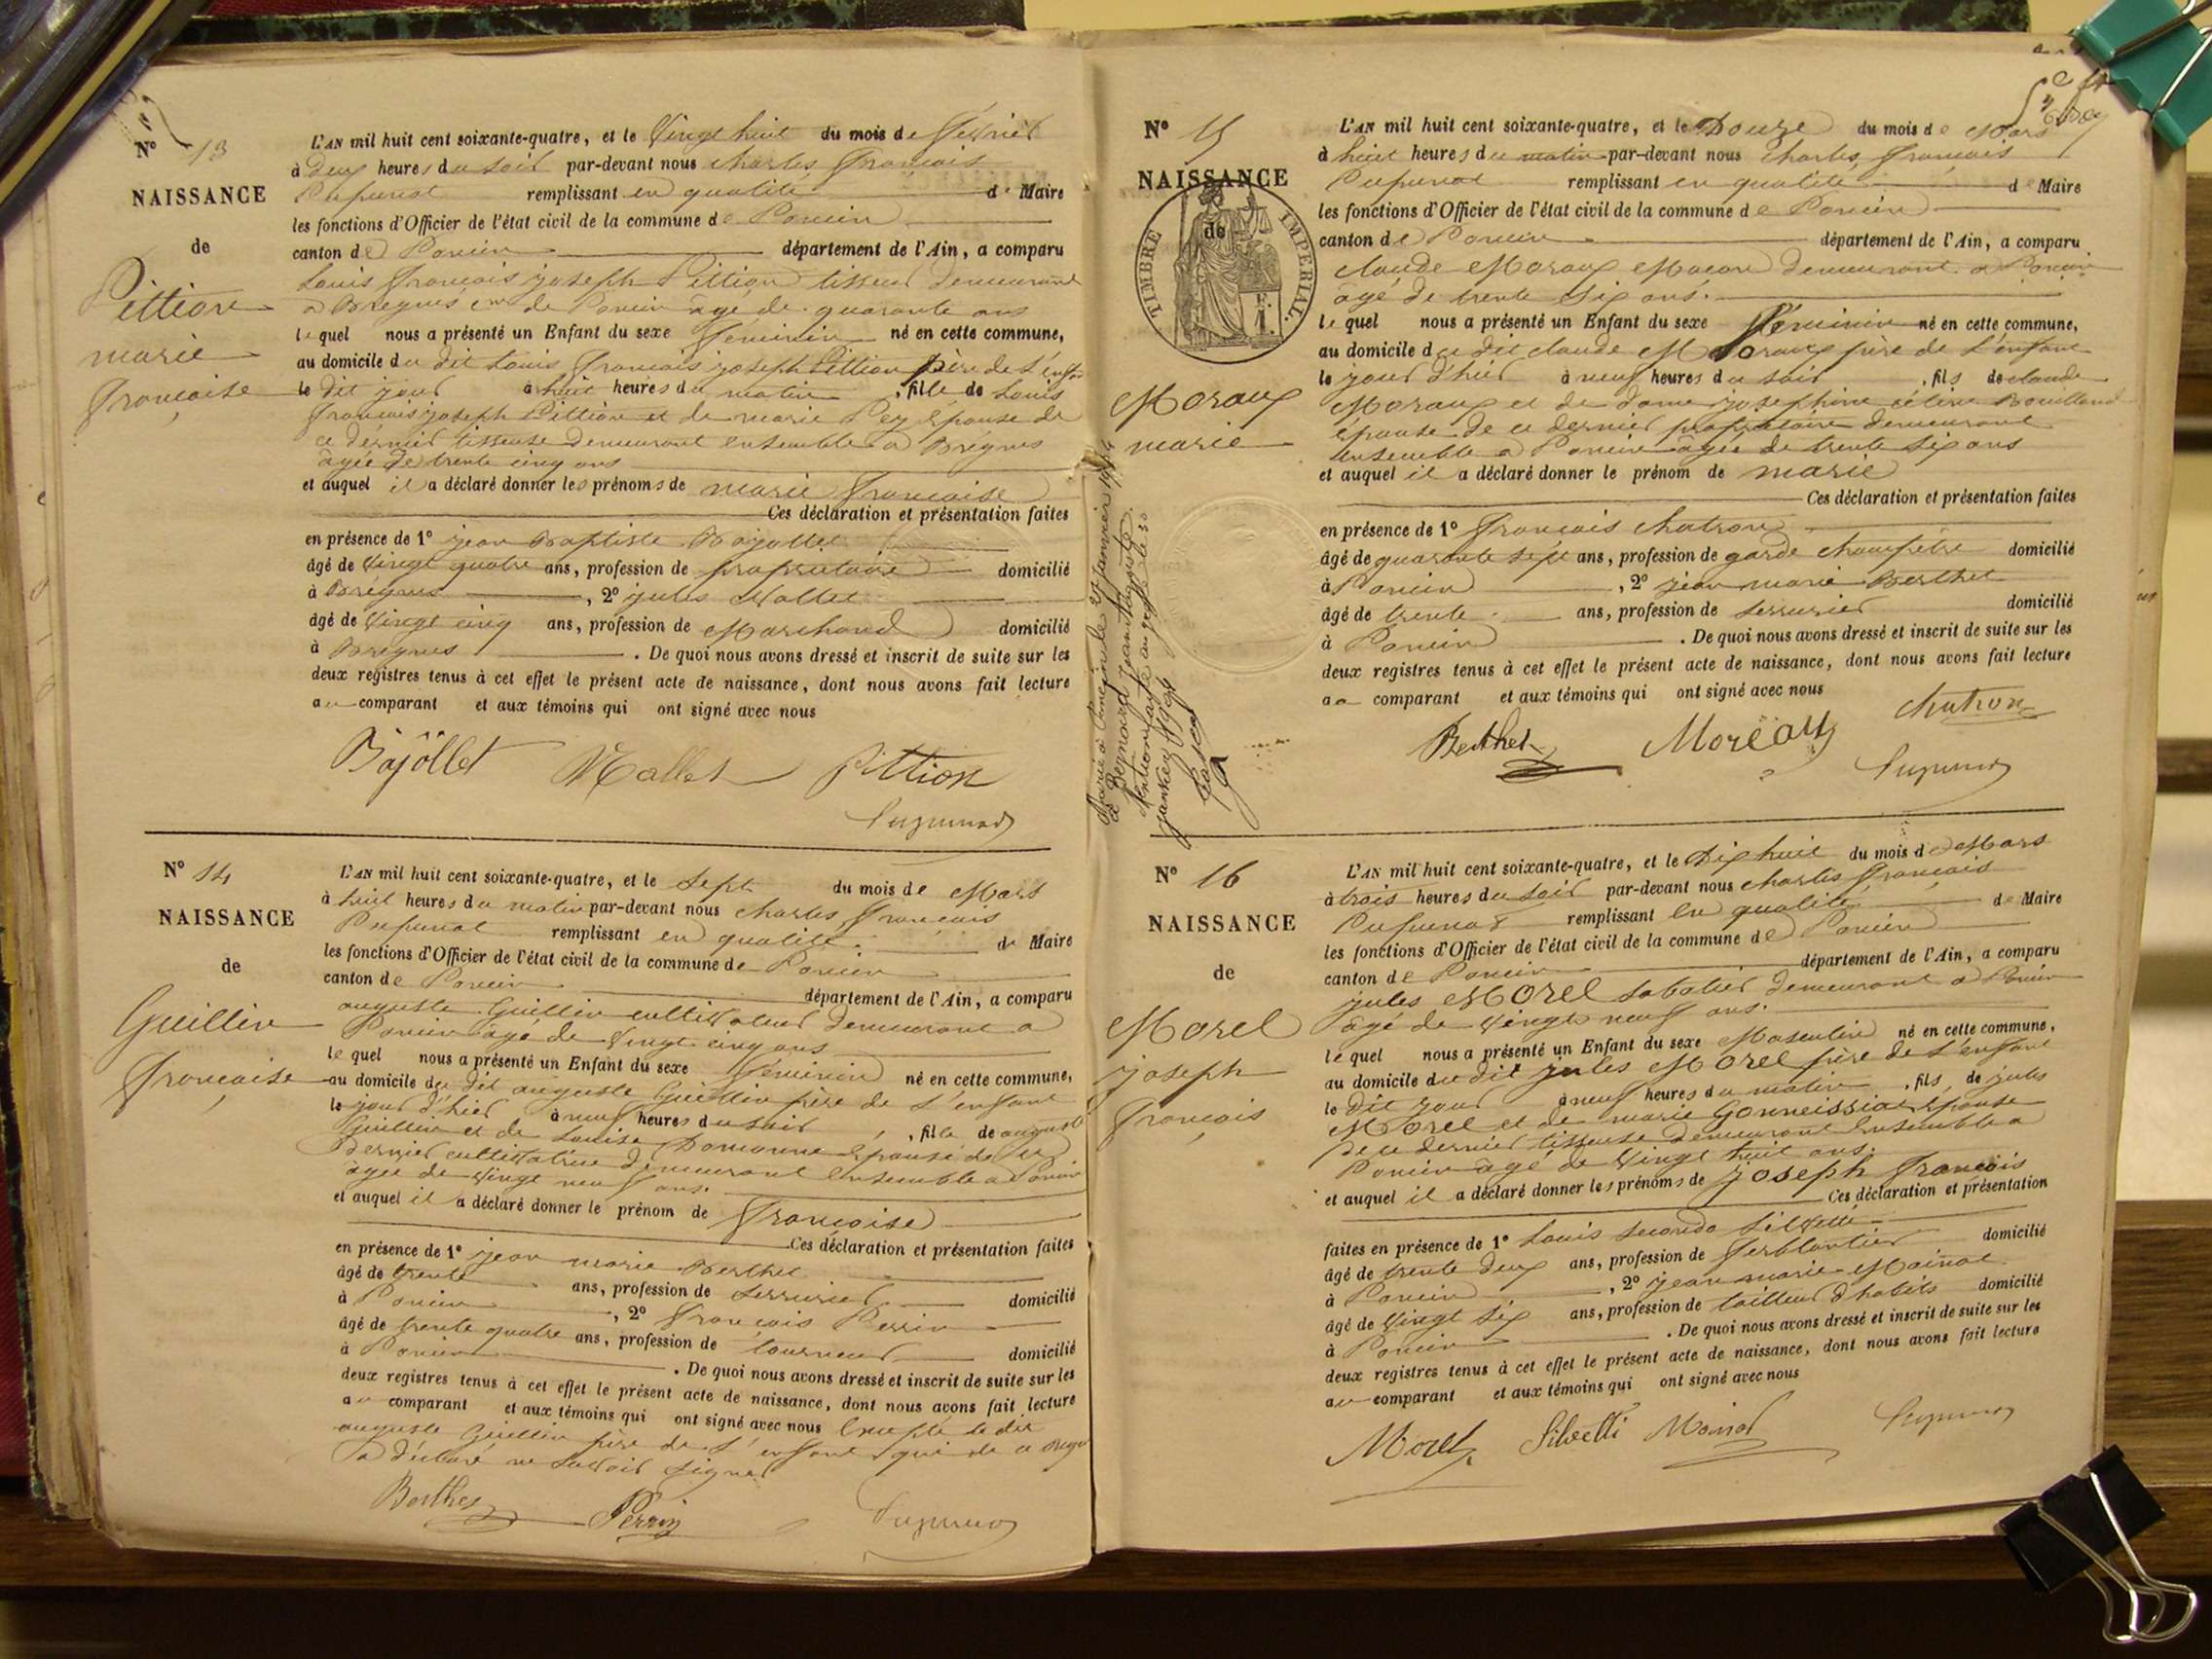 N° 13
NAISSANCE
de
Pittion
marie
françoise
L'AN mil huit cent soixante-quatre, et le Vingt huit du mois de fevrier
à deux heures du soir par-devant nous charles françois
remplissant en qualité de Maire
les fonctions d'Officier de l'état civil de la commune de Poncin
canton de Poncin département de l'Ain, a comparu
Louis françois joseph Pittion tisseur demeurant
a Bregnes cne de Poncin agé de quarante ans
lequel nous a présenté un Enfant du sexe féminin né en cette commune,
au domicile du dit Louis françois joseph Pittion père de l'enfant
le dit jour à huit heures du matin, fille de Louis
françois joseph Pittion et de marie Pey épouse de
ce dernier tisseuse demeurant ensemble a Bregnes
agée de trente cinq ans
et auquel il a déclaré donner les prénoms de marie françoise
Ces déclaration et présentation faites
en présence de 1° jean Baptiste Bajollet
âgé de Vingt quatre ans, profession de propriétaire domicilié
à Bregnes, 2° jules Mallet
âgé de Vingt cinq ans, profession de Marchand domicilié
à Bregnes. De quoi nous avons dressé et inscrit de suite sur les
deux registres tenus à cet effet le présent acte de naissance, dont nous avons fait lecture
au comparant et aux témoins qui ont signé avec nous
Bajöllet Mallet Pittion
N° 14
NAISSANCE
de
Guillin
françoise
L'AN mil huit cent soixante-quatre, et le sept du mois de Mars
à huit heures du matin par-devant nous charles françois
remplissant en qualité de Maire
les fonctions d'Officier de l'état civil de la commune de Poncin
canton de Poncin département de l'Ain, a comparu
auguste Guillin cultivateur demeurant a
Poncin agé de Vingt cinq ans
lequel nous a présenté un Enfant du sexe féminin né en cette commune,
au domicile du dit auguste Guillin père de l'enfant
le jour d'hier à neuf heures du soir, fille de auguste
Guillin et de Louise épouse de ce
dernier cultivatrice demeurant ensemble a Poncin
agée de Vingt neuf ans.
et auquel il a déclaré donner le prénom de françoise
Ces déclaration et présentation faites
en présence de 1° jean marie Berthet
âgé de trente ans, profession de serrurier domicilié
à Poncin, 2° françois Perrin
âgé de trente quatre ans, profession de tourneur domicilié
à Poncin. De quoi nous avons dressé et inscrit de suite sur les
deux registres tenus à cet effet le présent acte de naissance, dont nous avons fait lecture
au comparant et aux témoins qui ont signé avec nous Excepté le dit
auguste Guillin père de l'enfant qui de ce requis
a déclaré ne savoir signer
Berthet Perrin
N° 15
NAISSANCE
de
TIMBRE IMPERIAL.
Moraux
marie
L'AN mil huit cent soixante-quatre, et le Douze du mois de Mars
à huit heures du matin par-devant nous charles françois
remplissant en qualité de Maire
les fonctions d'Officier de l'état civil de la commune de Poncin
canton de Poncin département de l'Ain, a comparu
claude Moraux Maçon demeurant a Poncin
âgé de trente six ans.
lequel nous a présenté un Enfant du sexe féminin né en cette commune,
au domicile du dit claude Moraux père de l'enfant
le jour d'hier à neuf heures du soir, fils de claude
Moraux et de dame joséphine céline
épouse de ce dernier propriétaire demeurant
ensemble a Poncin agée de trente six ans
et auquel il a déclaré donner le prénom de marie
Ces déclaration et présentation faites
en présence de 1° françois chatron
âgé de quarante sept ans, profession de garde champêtre domicilié
à Poncin, 2° jean marie Berthet
âgé de trente ans, profession de serrurier domicilié
à Poncin. De quoi nous avons dressé et inscrit de suite sur les
deux registres tenus à cet effet le présent acte de naissance, dont nous avons fait lecture
au comparant et aux témoins qui ont signé avec nous
chatron
Berthet Morëaux
N° 16
NAISSANCE
de
Morel
joseph
françois
L'AN mil huit cent soixante-quatre, et le Dix huit du mois de Mars
à trois heures du soir par-devant nous charles françois
remplissant en qualité de Maire
les fonctions d'Officier de l'état civil de la commune de Poncin
canton de Poncin département de l'Ain, a comparu
jules Morel sabotier demeurant a Poncin
âgé de Vingt neuf ans.
lequel nous a présenté un Enfant du sexe Masculin né en cette commune,
au domicile du dit jules Morel père de l'enfant
le dit jour à neuf heures du matin, fils de jules
Morel et de marie Gonneissiat épouse
de ce dernier tisseuse demeurant ensemble a
Poncin agé de Vingt huit ans.
et auquel il a déclaré donner les prénoms de joseph françois
Ces déclaration et présentation
faites en présence de 1° Louis secondo Silvetti
âgé de trente deux ans, profession de ferblantier domicilié
à Poncin, 2° jean marie Moinat
âgé de Vingt six ans, profession de tailleur d'habits domicilié
à Poncin. De quoi nous avons dressé et inscrit de suite sur les
deux registres tenus à cet effet le présent acte de naissance, dont nous avons fait lecture
au comparant et aux témoins qui ont signé avec nous
Morel Silvetti Moinat